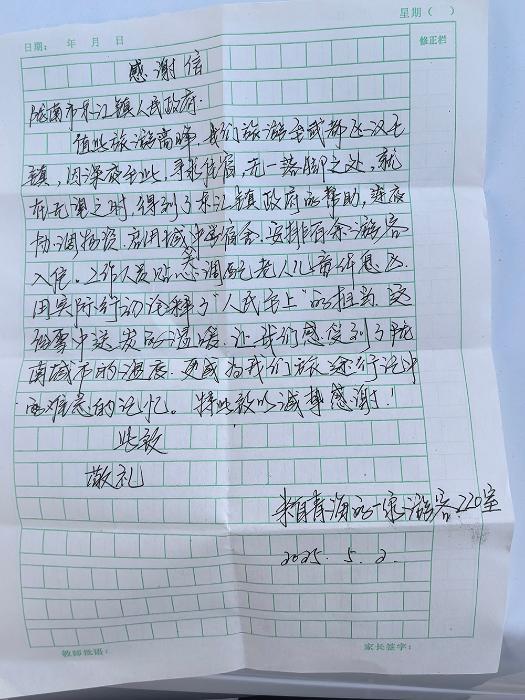 星期（ ）
日期： 年 月 日
修正栏
感谢信
陇南市东江镇人民政府.
值此旅游高峰，我们旅游至武都区汉王
镇，因深夜至此，寻找住宿，无一落脚之处，就
在无课之时，得到了东江镇政府的帮助，连夜
协调物资，启用城关中学宿舍，安排百余游客
入住。工作人员贴心调配老人儿童休息区
用实际行动诠释了“人民至上”的担当. 这
份雪中送炭的温暖，让我们感受到了陇
南城市的温度. 更成为我们旅途行记中
难忘的记忆。特此致以诚挚感谢！
此致
敬礼
来自青海的一众游客.220室
2025. 5. 2.
教师批语：
家长签字：